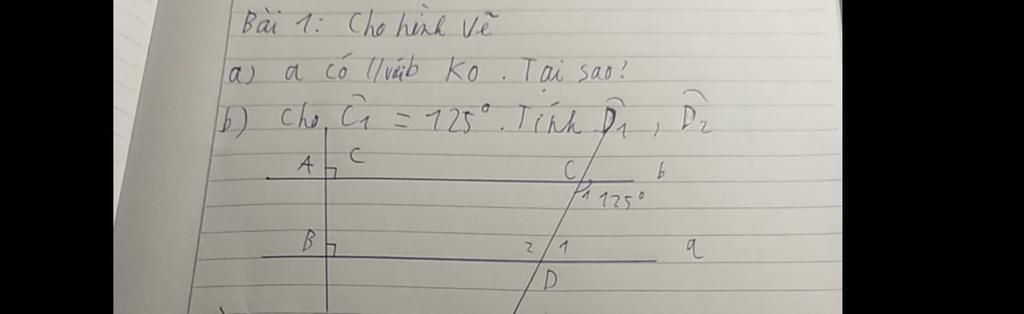 Bài 1: Cho hình vẽ
a) a có // với b Ko. Tại sao?
b) Cho Ĉ1 = 125°. Tính D̂1, D̂2
A C C b
1 125°
B 2 1 a
D